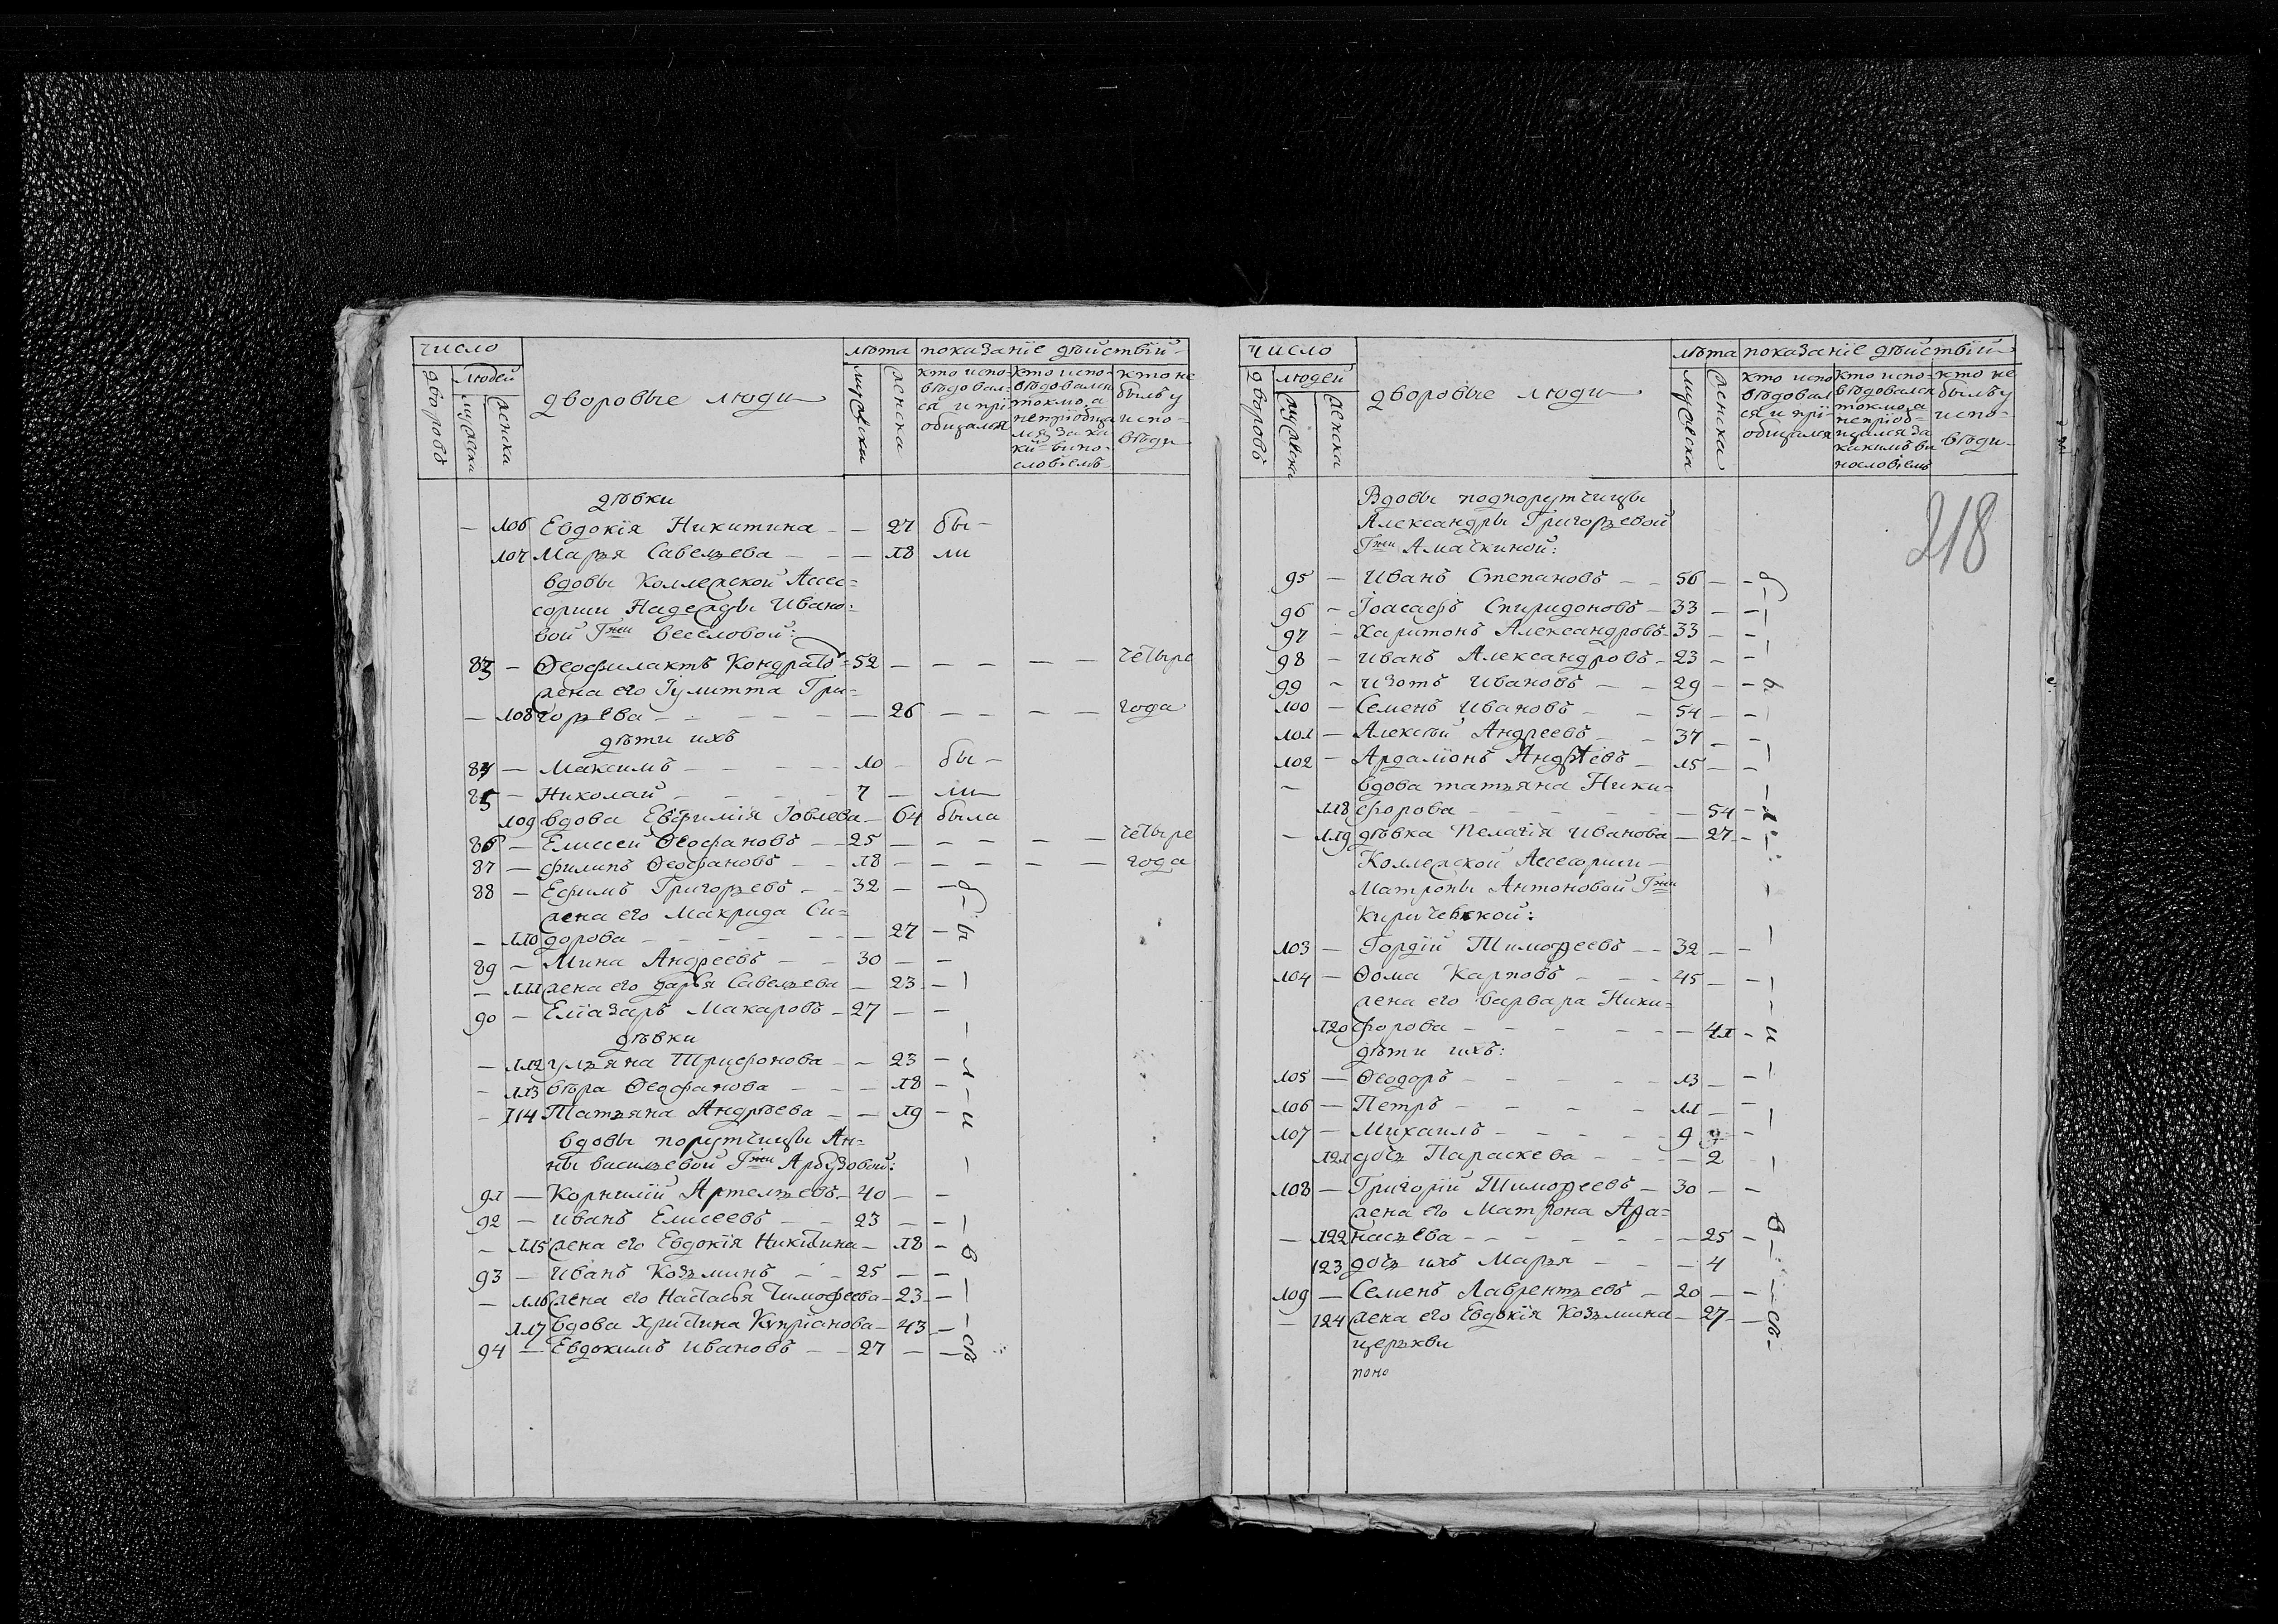 число
лѣта показанїе дѣйствїй
дворовъ
людей
мужеска
женска
дворовые люди
мужеска
женска
кто испо-
вѣдовал-
ся и прї-
общался
кто испо-
вѣдовался
токмо, а
непрїобща
лся за ка
ки- вино-
словїемъ
кто не
былъ у
испо-
вѣди
дѣвки
— 106 Евдокїя Никитина — — 27 бы-
107 Марья Савельева — — 18 ли
вдовы Коллежской Ассес=
сорши Надежды Ивано=
вой Гжи Веселовой:
83 — Ѳеофилактъ Кондратѣ= 52 — — — — — четыре
жена его Іулитта Гри-
— 108 горьева — — — — 26 — — — — года
дѣти ихъ
84 — Максимъ — — — 10 — бы-
85 — Николай — — — 7 — ли
109 вдова Евфимїя Іовлева — 64 была
86 — Елисей Ѳеофановъ — 25 — — — — — четыре
87 — Филипъ Ѳеофановъ — 18 — — — — — года
88 — Ефимъ Григорьевъ — 32 — — б
жена его Макрида Си=
— 110 дорова — — — — 27 — ы
89 — Мина Андреевъ — 30 — —
— 111 жена его Дарья Савельева — 23 —
90 — Елїазаръ Макаровъ — 27 — —
дѣвки
— 112 Ульяна Трифонова — — 23 — л
— 113 Вѣра Ѳеофанова — — 18 —
— 114 Татьяна Андрѣева — — 19 — и
вдовы порутчицы Ан-
ны Васильевой Гжи Арбузовой:
91 — Корнилїй Артемьевъ — 40 — —
92 — Иванъ Елисеевъ — 23 — —
— 115 жена его Евдокїя Никитина — 18 — в
93 — Иванъ Козьминъ — 25 — —
— 116 жена его Настасья Тимофеева — 23 —
117 вдова Христина Купрїанова — 43 —
94 — Евдокимъ Ивановъ — 27 — — сѣ
число
лѣта показанїе дѣйствїй
дворовъ
людей
мужеска
женска
дворовые люди
мужеска
женска
кто испо
вѣдовал
ся и прї-
общался
кто испо-
вѣдовался
токмо, а
непрїоб-
щался за
какимъ ви
нословїемъ
кто не
былъ у
испо-
вѣди
218
Вдовы подпорутчицы
Александры Григорьевой
Гжи Амачкиной:
95 — Иванъ Степановъ — — 56 — — б
96 — Іоасафъ Спиридоновъ — 33 — —
97 — Харитонъ Александровъ — 33 — —
98 — Иванъ Александровъ — 23 — —
99 — Изотъ Ивановъ — — 29 — — ы
100 — Семенъ Ивановъ — — 54 — —
101 — Алексѣй Андреевъ — 37 — —
102 — Ардалїонъ Андрѣевъ — 15 — —
— вдова татьяна Ники=
118 форова — — — — 54 — л
— 119 дѣвка Пелагїя Иванова — 27 —
Коллежской Ассесорши —
Матроны Антоновой Гжи
Киричевской:
103 — Гордїй Тимофеевъ — 32 — —
104 — Ѳома Карповъ — — 45 — —
жена его Варвара Ники=
120 форова — — — — 41 — и
дѣти ихъ:
105 — Ѳеодоръ — — — 13 — —
106 — Петръ — — — 11 — —
107 — Михаилъ — — — 9 —
121 дочь Параскева — — — 2
108 — Григорїй Тимофеевъ — 30 — —
жена его Матрона Афа=
— 122 насьева — — — — 25 — в
123 дочь ихъ Марья — — 4
109 — Семенъ Лаврентьевъ — 20 — —
— 124 жена его Евдокїя Козьмина — 27 — сѣ
церькви
поно